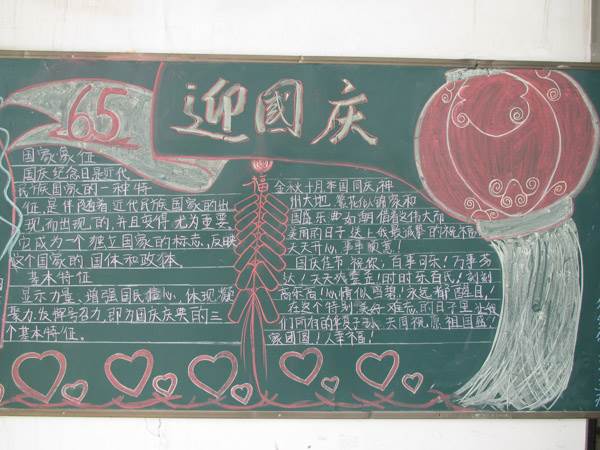 65
迎國庆
国家象征
国庆纪念日是近代
民族国家的一种特
征,是伴随着近代民族国家的出
现而出现的,并且变得尤为重要
它成为一个独立国家的标志,反映
这个国家的国体和政体。
基本特征
显示力量、增强国民信心,体现凝
聚力,发挥号召力,即为国庆庆典的三
个基本特征。
福
金秋十月来国同庆神
州大地 繁花似锦祥和
国盛乐曲如潮借着这伟大而
美丽的日子送上我最诚挚的祝
天天开心,事事顺意!
国庆佳节祝你,百事可乐!万事芬
达!天天娃哈哈!时时乐百氏!
高乐高!心情似雪碧!永远都醒目!
在这个特别美好难忘的日子里让我
们所有的华夏子孙 天同祝愿祖国盛
家团圆!人幸福!